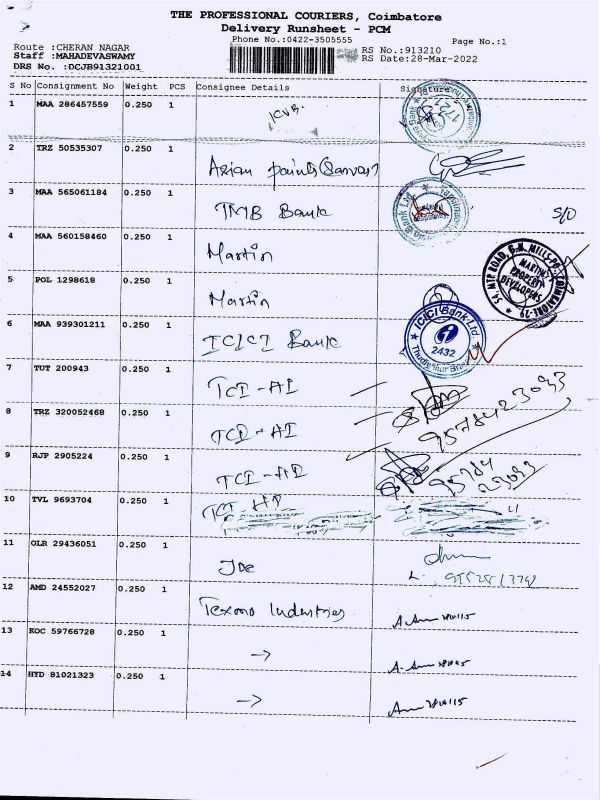 THE PROFESSIONAL COURIERS, Coimbatore
Delivery Runsheet - PCM
Phone No.:0422-3505555
Page No.:1
Route :CHERAN NAGAR
RS No.:913210
Staff :MAHADEVASWAMY
RS Date:28-Mar-2022
DRS No. :DCJB91321001
S No Consignment No Weight PCS Consignee Details Signature
1 MAA 286457559 0.250 1 KVB.
2 TRZ 50535307 0.250 1 Asian paints
3 MAA 565061184 0.250 1 TMB Bank
4 MAA 560158460 0.250 1 Martin
54, MTP ROAD, G.N. MILLS-PO, COIMBATORE-29
MARTIN
PROPERTY
DEVELOPERS
5 POL 1298618 0.250 1 Martin
6 MAA 939301211 0.250 1 ICICI Bank
ICICI Bank Ltd
2432
7 TUT 200943 0.250 1 TCI-AI
8 TRZ 320052468 0.250 1 TCI-AI
9578423093
9 RJP 2905224 0.250 1 TCI-AI
95784
23093
10 TVL 9693704 0.250 1
11 OLR 29436051 0.250 1 Joe
12 AMD 24552027 0.250 1 Texmo Industries
13 KOC 59766728 0.250 1 →
14 HYD 81021323 0.250 1 →